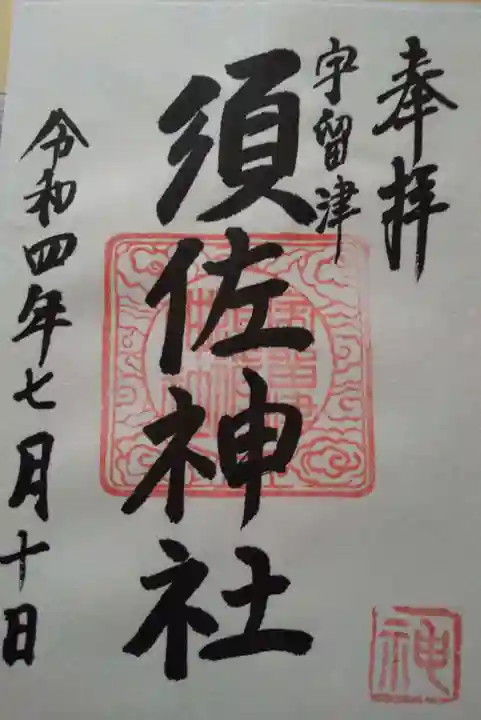 奉拝
宇留津
須佐神社
令和四年七月十日
神